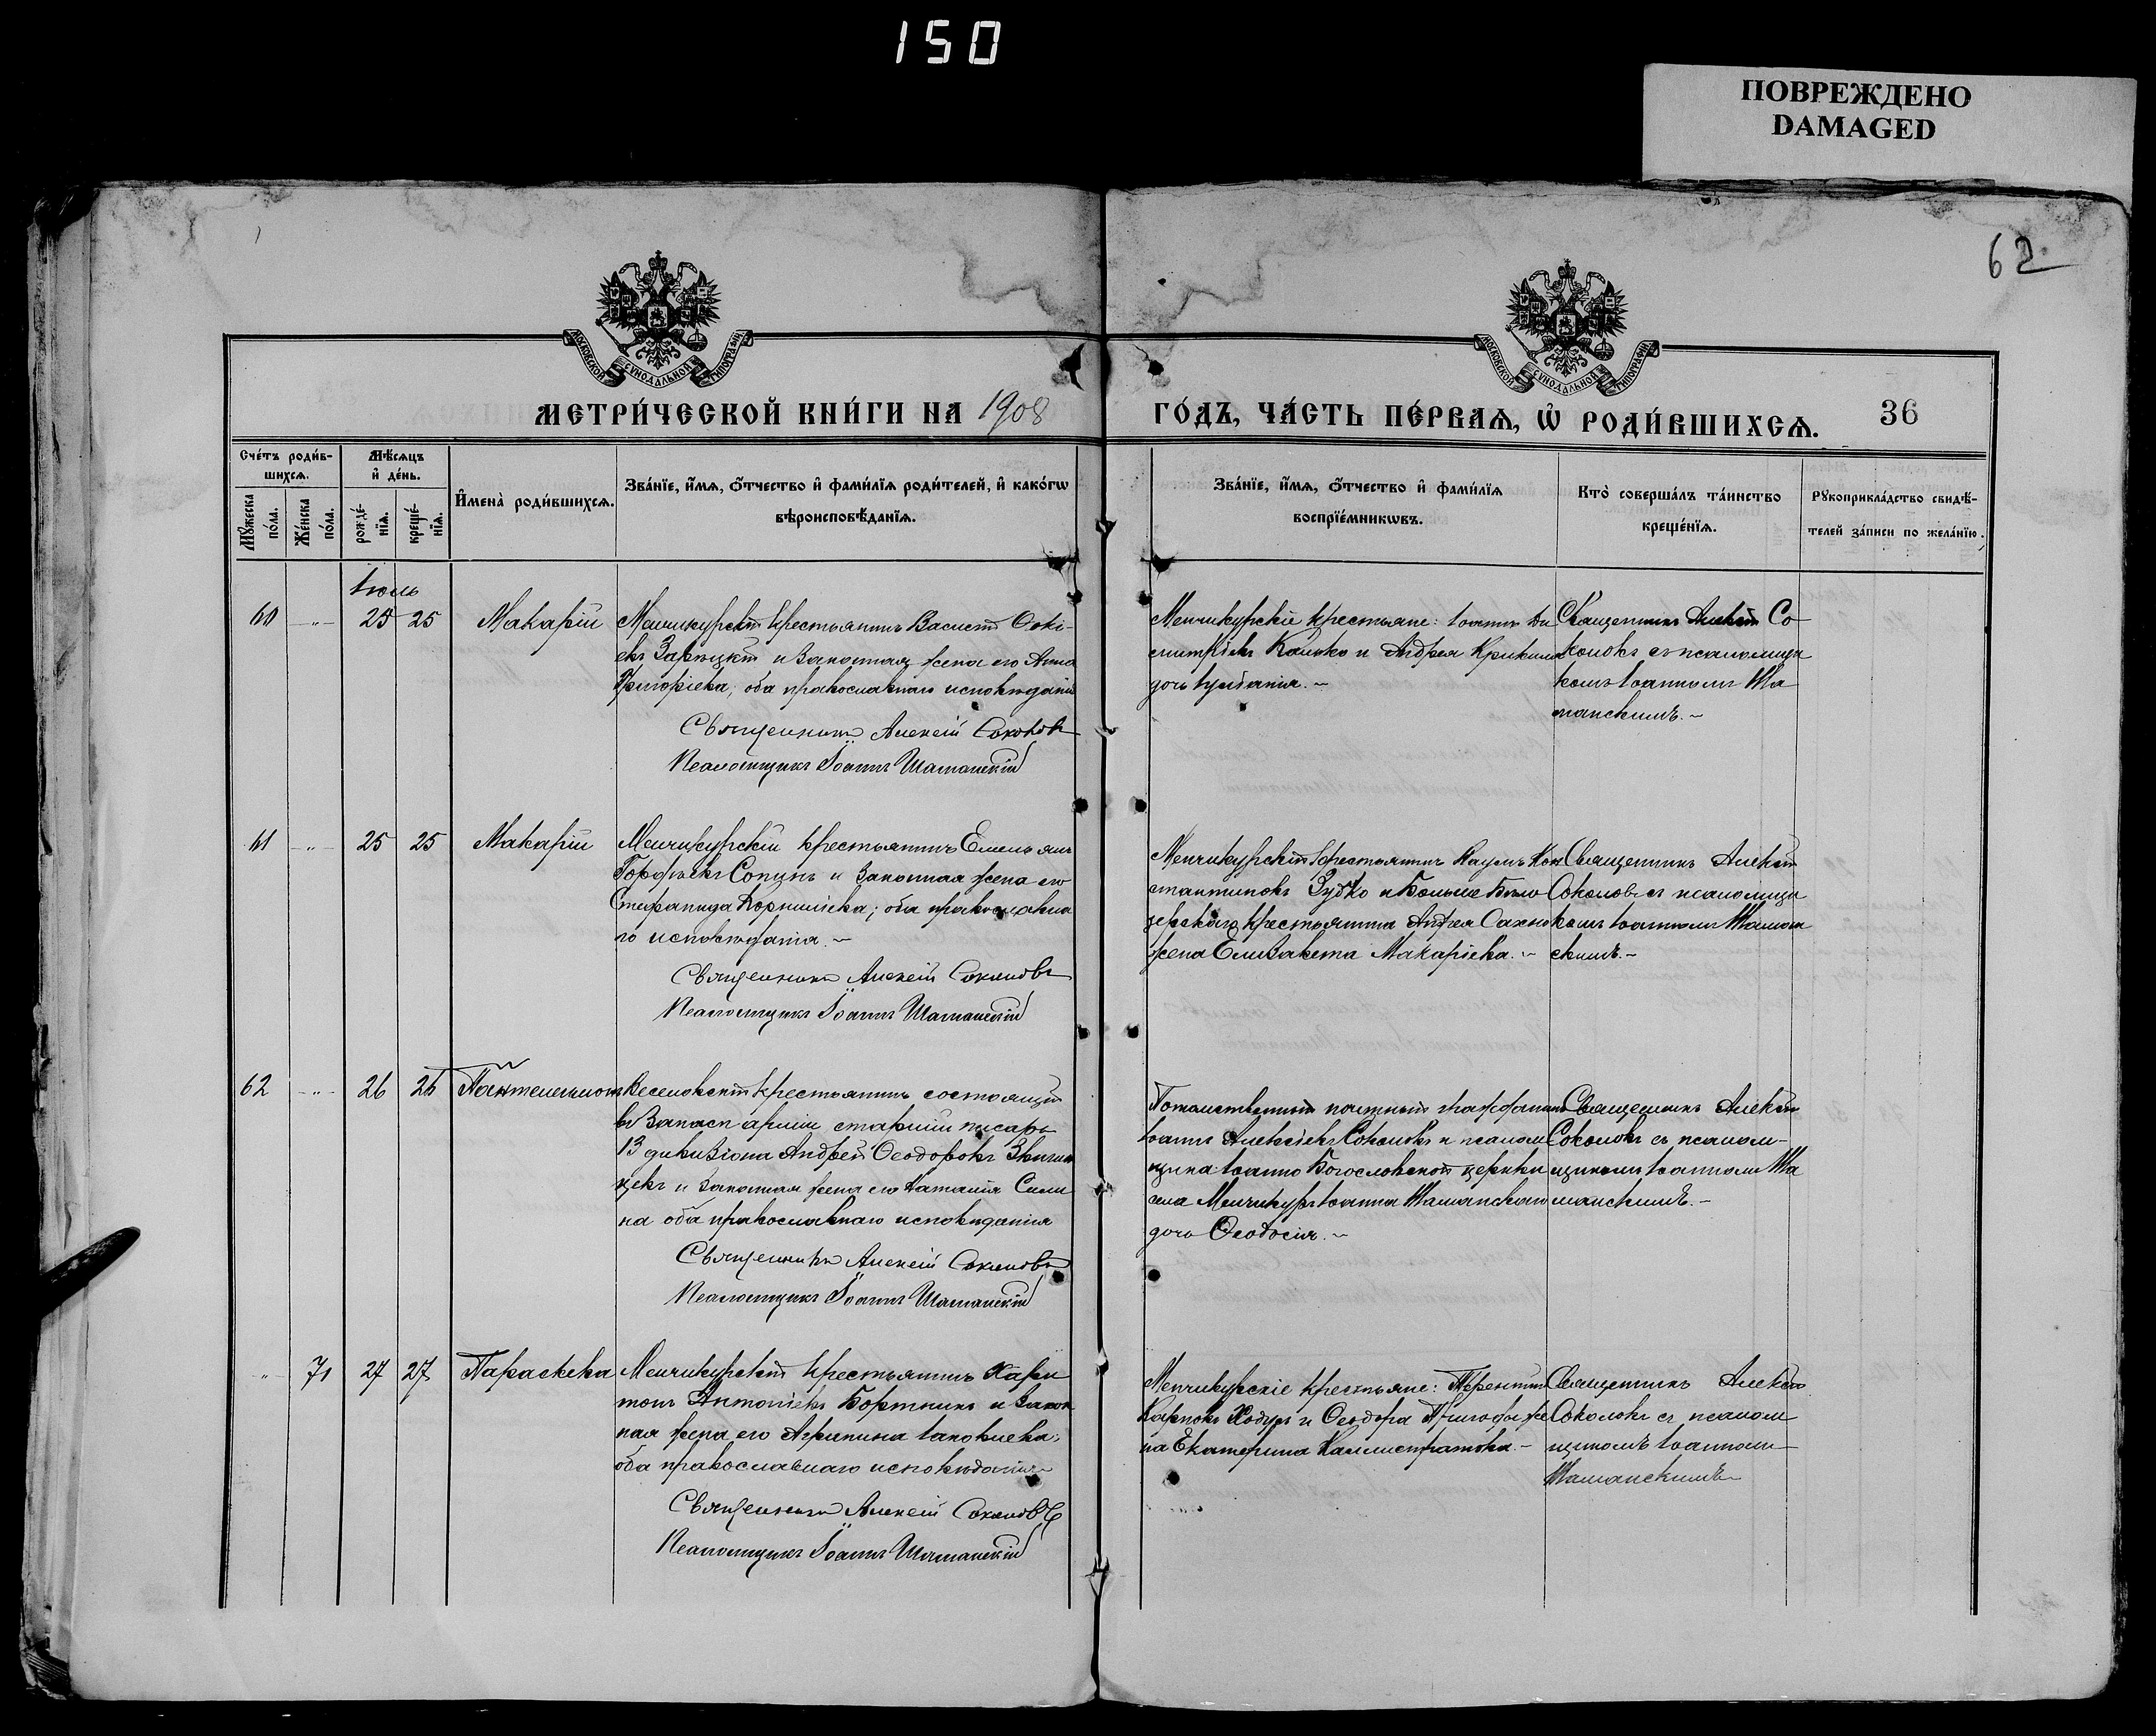 150
ПОВРЕЖДЕНО
DAMAGED
62
МОСКОВСКОЙ СУНОДАЛЬНОЙ ТИПОГРАФІИ
МОСКОВСКОЙ СУНОДАЛЬНОЙ ТИПОГРАФІИ
МЕТРИ́ЧЕСКОЙ КНИ́ГИ НА 1908
ГО́ДЪ, ЧА́СТЬ ПЕ́РВАѦ, Ѡ҆ РОДИ́ВШИХСѦ. 36
Сче́тъ роди́в-
шихсѧ.
Мꙋ́жеска
по́ла.
Же́нска
по́ла.
Мѣ́сѧцъ
и҆ де́нь.
рожде́-
нїѧ.
креще́-
нїѧ.
И҆мена̀ роди́вшихсѧ.
Зва́нїе, и҆́мѧ, ѻ҆́тчество и҆ фами́лїѧ роди́телей, и҆ како́гѡ
вѣроисповѣ́данїѧ.
Зва́нїе, и҆́мѧ, ѻ҆́тчество и҆ фами́лїѧ
воспрїе́мникѡвъ.
Кто̀ соверша́лъ та́инство
креще́нїѧ.
Рꙋкоприкла́дство свидѣ́-
телей за́писи по жела́нїю.
Іюль
60 -"- 25 25 Макарій
Менчикурскій крестьянинъ
Зарѣцкій и законная жена его Анна
Григоріева, оба православнаго исповѣданія
Священникъ Алексій Соколовъ
Псаломщикъ Іоаннъ Шаманскій
Менчикурскіе крестьяне: Іоаннъ Ди
митріевъ и Андрея
дочь Іуліанія. ~
Священникъ Алексій Со
коловъ съ псаломщи
комъ Іоанномъ Ша
манскимъ. ~
61 -"- 25 25 Макарій
Менчикурскій крестьянинъ Емельянъ
Сопунъ и законная жена его
Стефанида Корниліева; оба православна
го исповѣданія. ~
Священникъ Алексій Соколовъ
Псаломщикъ Іоаннъ Шаманскій
Менчикурскій крестьянинъ Наумъ Кон
стантиновъ Зубко и Больше Бѣло
зерскаго крестьянина Андрея Сахно
жена Елизавета Макаріева. ~
Священникъ Алексій
Соколовъ съ псаломщи
комъ Іоанномъ Шаман
скимъ. ~
62 -"- 26 26 Пантелеимонъ
Веселовскій крестьянинъ состоящій
въ запасѣ арміи старшій писарь
13 дивизіона Андрей Ѳеодоровъ
и законная жена его Наталія Сили
на оба православнаго исповѣданія
Священникъ Алексій Соколовъ
Псаломщикъ Іоаннъ Шаманскій
Потомственный почтный гражданинъ
Іоаннъ Алексіевъ Соколовъ и псалом
щика Іоанно Богословской церкви
села Менчикуръ Іоанна Шаманскаго
дочь Ѳеодосія. ~
Священникъ Алексій
Соколовъ съ псалом-
щикомъ Іоанномъ Ша
манскимъ. ~
" 71 27 27 Параскева
Менчикурскій крестьянинъ Хари
тонъ Антоніевъ Бортникъ и закон
ная жена его Агрипина Іаковлева;
оба православнаго исповѣданія ~
Священникъ Алексій Соколовъ
Псаломщикъ Іоаннъ Шаманскій
Менчикурскіе крестьяне: Терентій
Карповъ Ходуръ и Ѳеодора Пригоды же
на Екатерина Каллистратова. ~
Священникъ Алексій
Соколовъ съ псалом
щикомъ Іоанномъ
Шаманскимъ ~